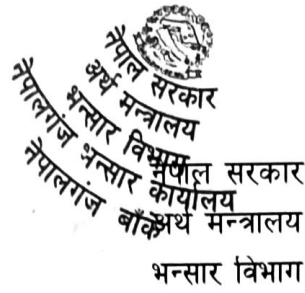 नेपाल सरकार
अर्थ मन्त्रालय
भन्सार विभाग
नेपालगंज भन्सार कार्यालय
नेपालगंज बाँके
नेपाल सरकार
अर्थ मन्त्रालय
भन्सार विभाग